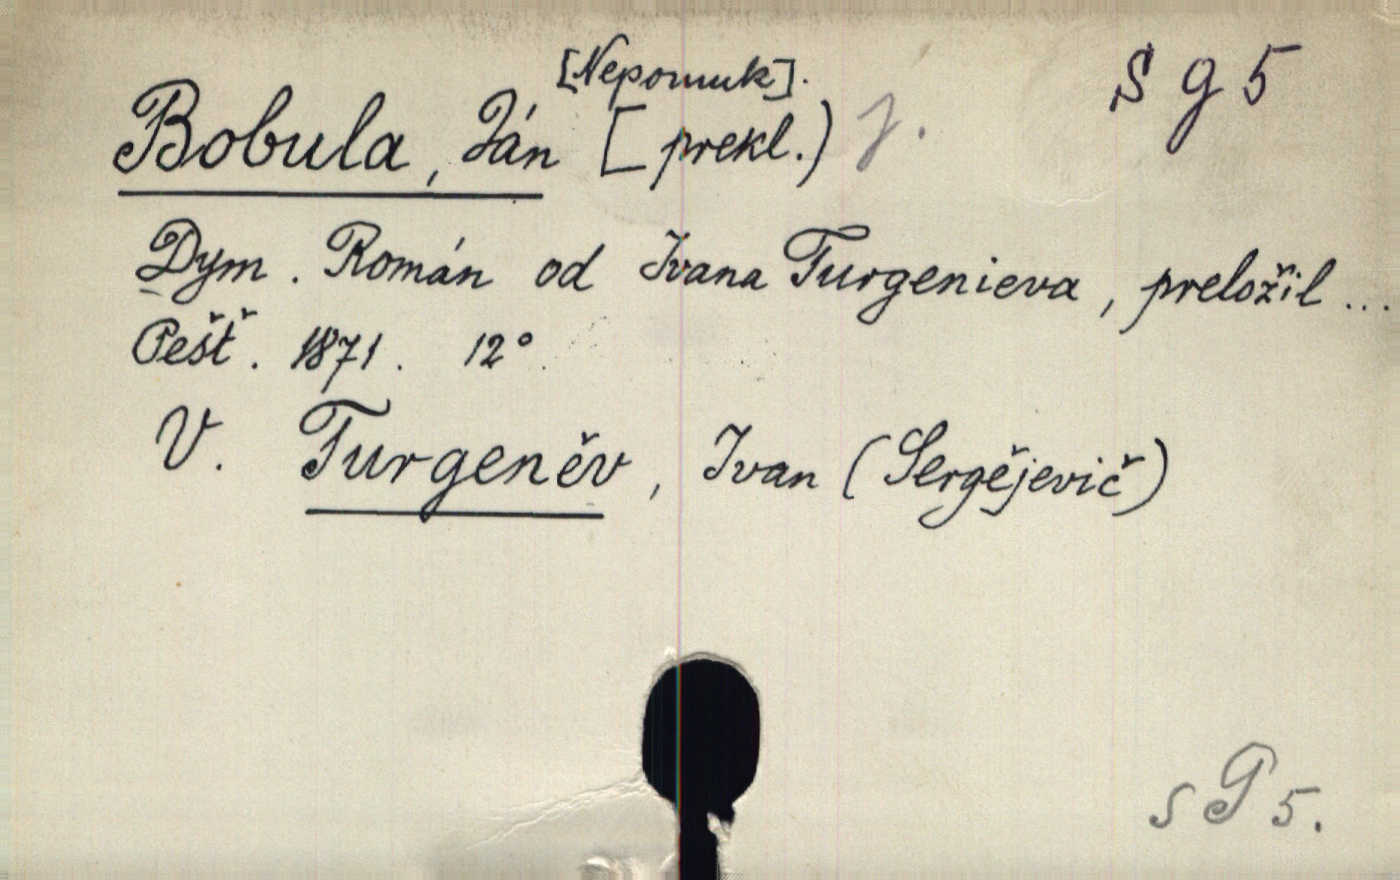 [Nepomuk]. S g 5
Bobula, Ján [prekl.) j.
Dym. Román od Ivana Turgenieva, preložil ...
Pešť. 1871. 12°.
V. Turgeněv, Ivan (Sergějevič)
S G 5.